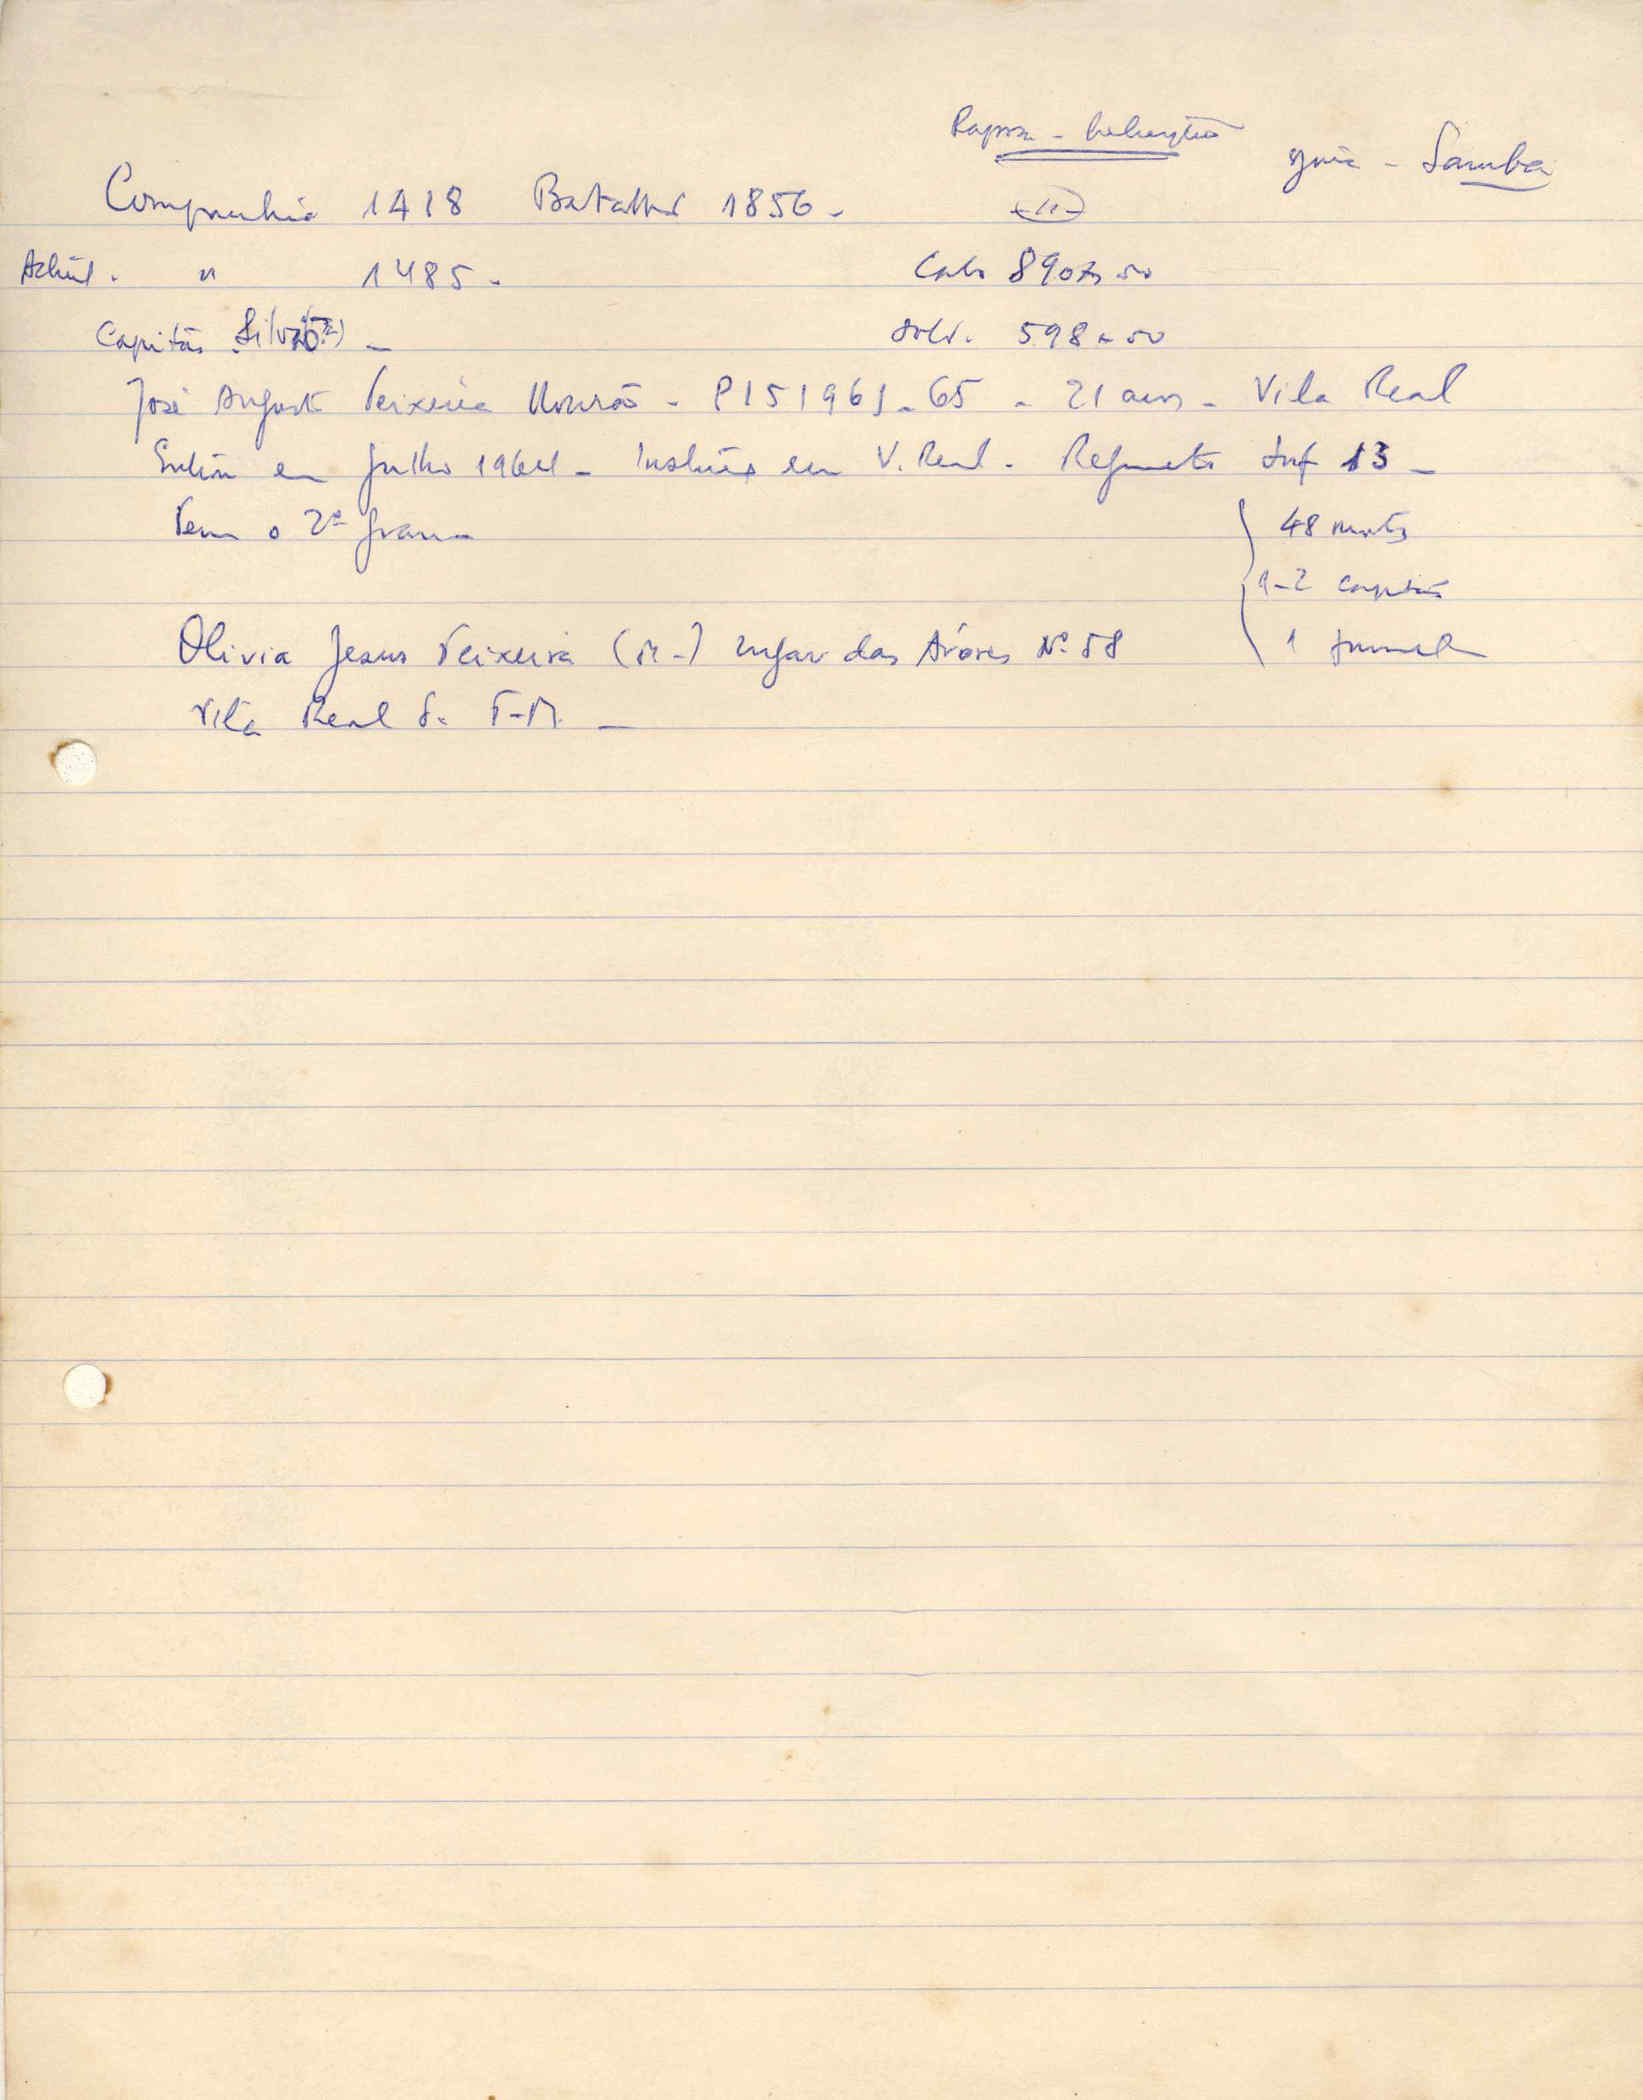 guia - Samba
Companhia 1418 Batalhão 1856 -
" 1485 -
Cabo 890 $ 00
Capitão Silva -
Sold. 598 $ 00
José Augusto Teixeira Mourão - P 151961 - 65 - 21 anos - Vila Real
em Julho 1964 - Instrução em V. Real - Regimento Inf 13 -
Tem o 2º grau -
48 mortos
1-2 capitão
1
Olivia Jesus Teixeira (M -) Lugar das Árvores Nº 58
Vila Real T. T-M. -